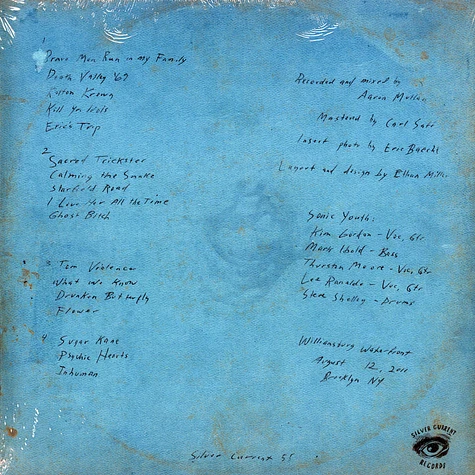 1
Brave Men Run in my Family
Death Valley '69
Kotton Krown
Kill Yr Idols
Eric's Trip
2
Sacred Trickster
Calming the Snake
Starfield Road
I Love Her All the Time
Ghost Bitch
3
Tom Violence
What we Know
Drunken Butterfly
Flower
4
Sugar Kane
Psychic Hearts
Inhuman
Recorded and mixed by
Aaron Mullan
Mastered by Carl Saff
Insert photo by Eric Baecht
Layout and design by Ethan Miller
Sonic Youth:
Kim Gordon - Voc, Gtr
Mark Ibold - Bass
Thurston Moore - Voc, Gtr
Lee Ranaldo - Voc, Gtr
Steve Shelley - Drums
Williamsburg Waterfront
August 12, 2011
Brooklyn NY
Silver Current 55
SILVER CURRENT
RECORDS